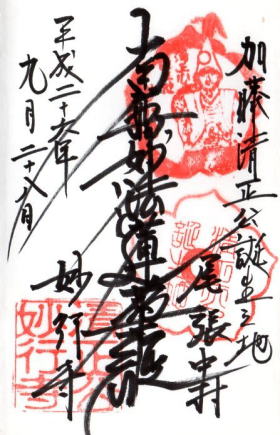 加藤清正公誕生之地
尾張中村
南無妙法蓮華経
妙行寺
平成二十六年
九月二十八日
妙行寺